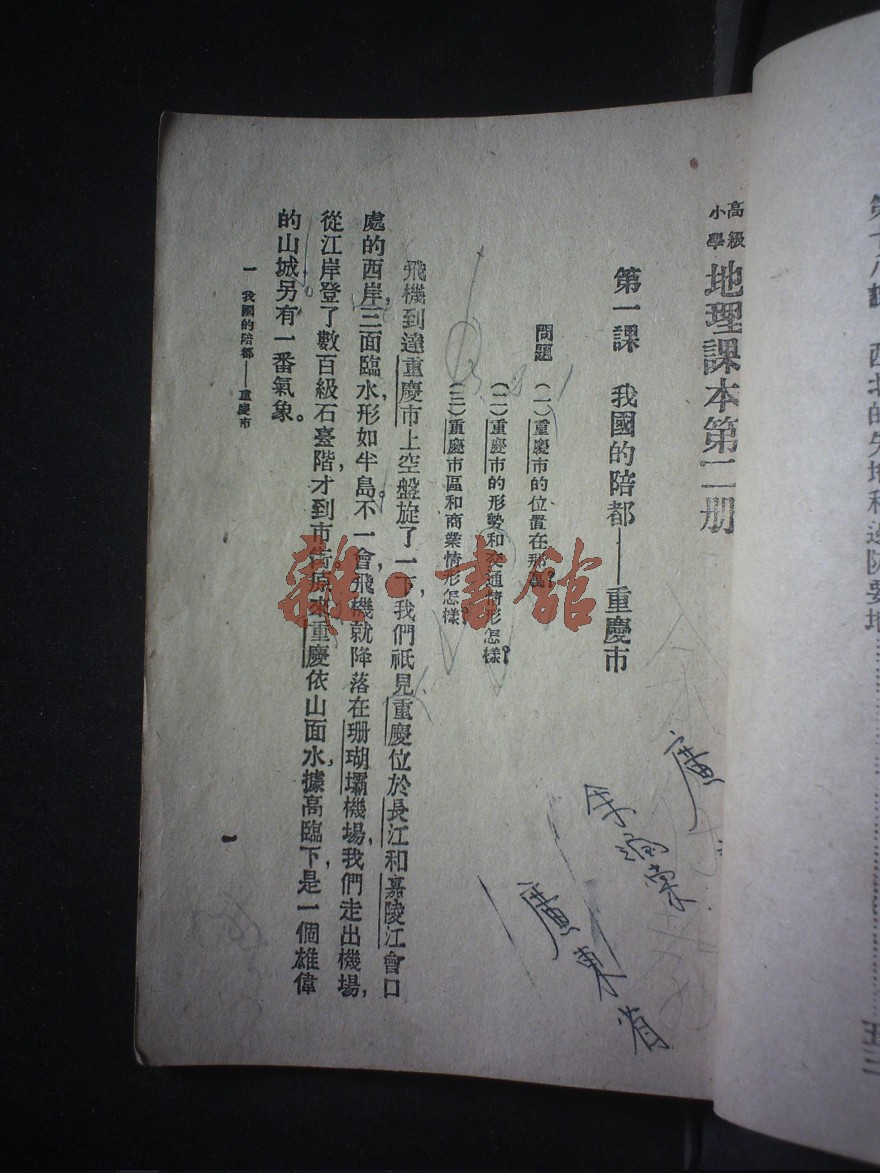 高級
小學
地理課本第二册
第一課　我國的陪都——重慶市
問題　(一)重慶市的位置在那裏?
(二)重慶市的形勢和交通情形怎樣?
(三)重慶市區和商業情形怎樣?
飛機到達重慶市上空盤旋了一下,我們祇見重慶位於長江和嘉陵江會口
處的西岸,三面臨水,形如半島。不一會,飛機就降落在珊瑚壩機場,我們走出機場,
從江岸登了數百級石臺階,才到市街。原來重慶依山面水,據高臨下,是一個雄偉
的山城,另有一番氣象。
一　我國的陪都——重慶市
一
廣
廣東省
雜·書館
西北的失地和邊防要地
五二